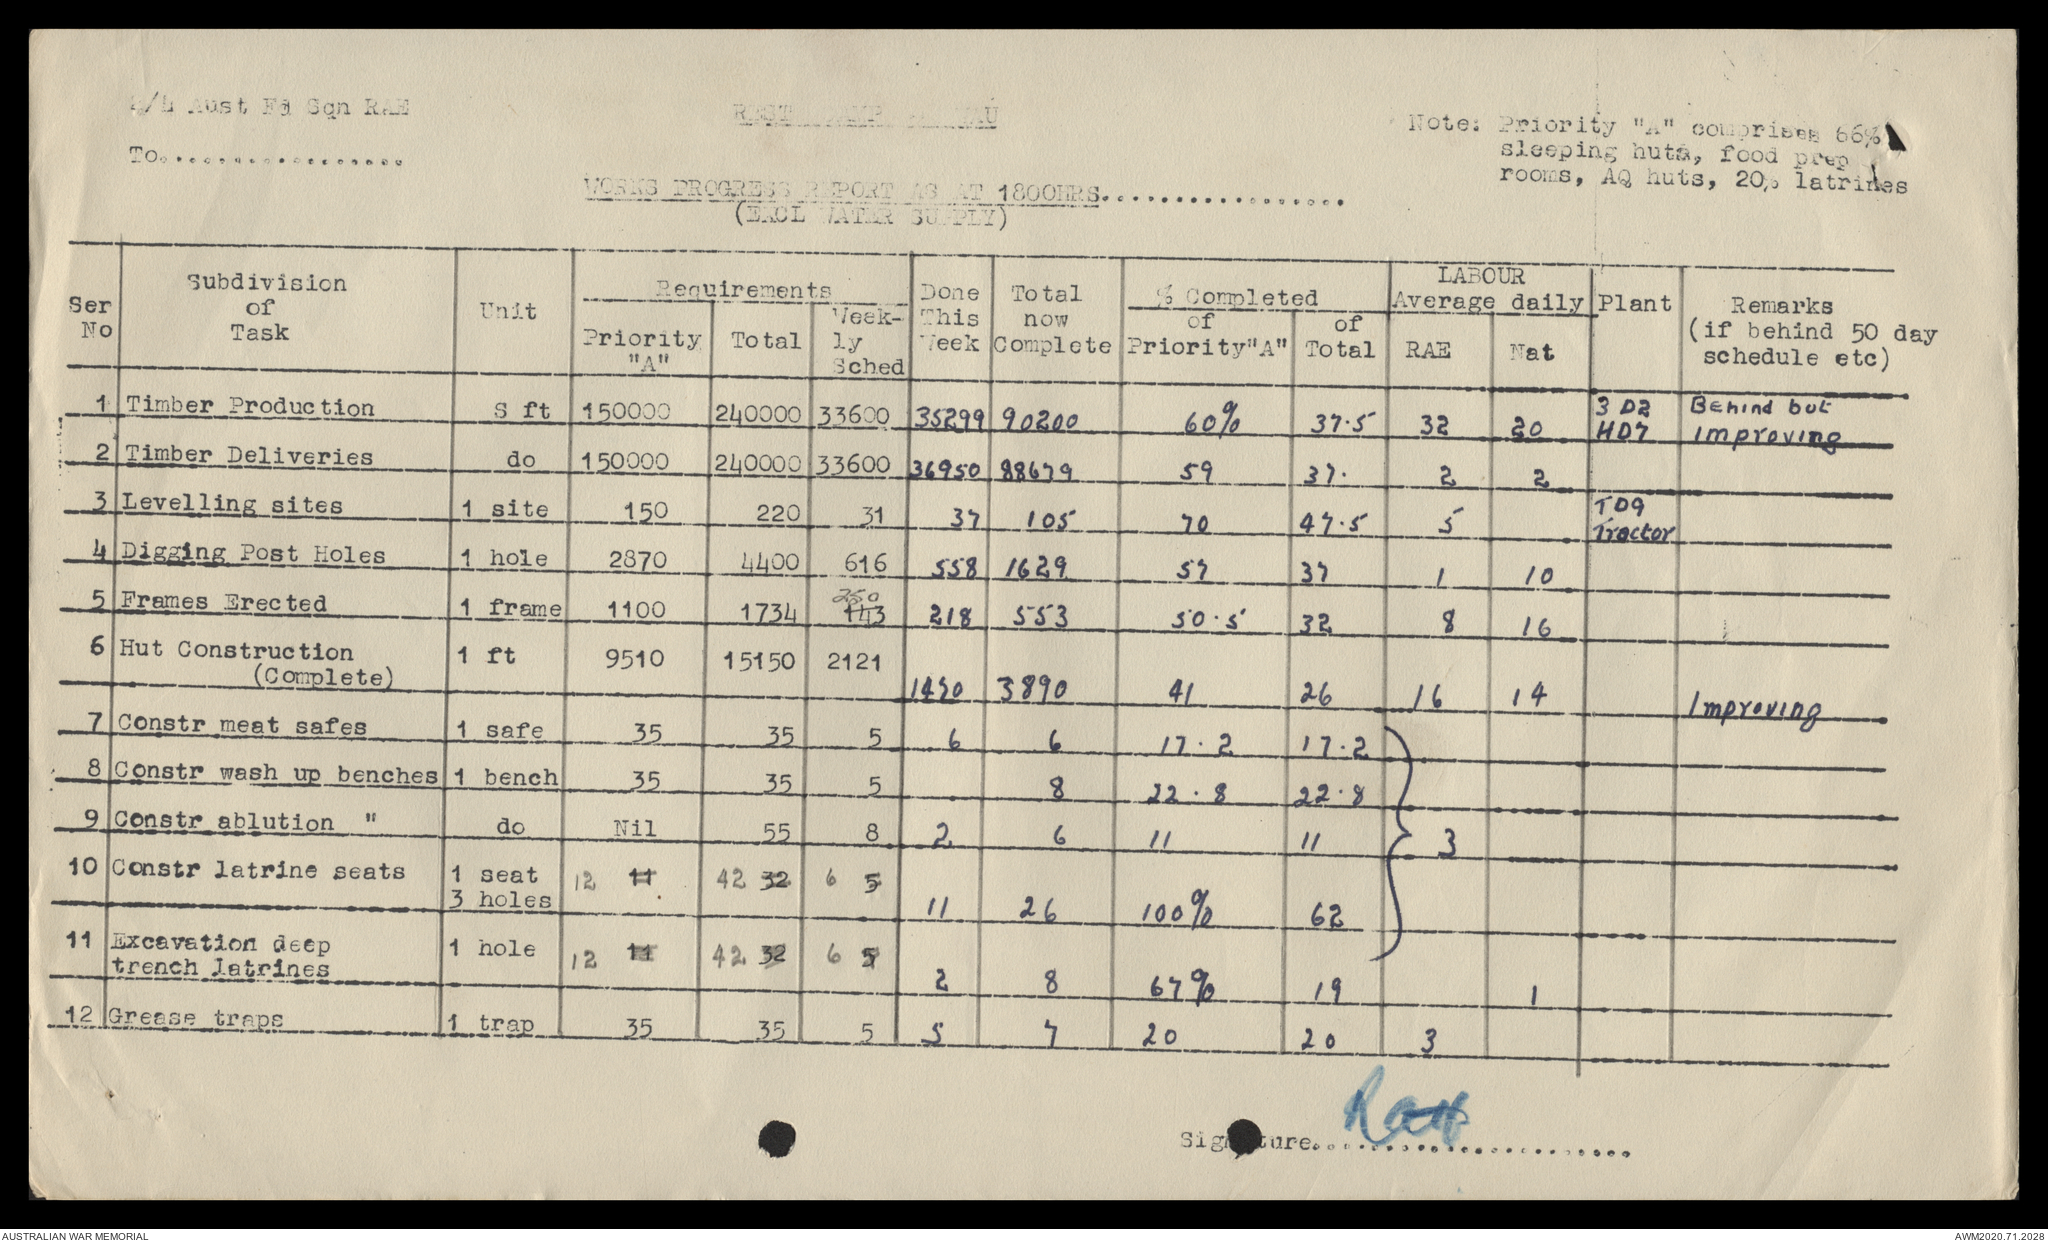 2/4 Aust Fd Sqn RAE
REST CAMP
To..................
Note: Priority "A" comprises 66%
sleeping huts, food prep
rooms, AQ huts, 20% latrines
WORKS PROGRESS REPORT AS AT 1800HRS..................
(EXCL WATER SUPPLY)
Ser No | Subdivision of Task | Unit | Requirements | Done This Week | Total now Complete | % Completed | LABOUR Average daily | Plant | Remarks (if behind 50 day schedule etc)
Priority "A" | Total | Week-ly Sched | of Priority "A" | of Total | RAE | Nat
1 Timber Production S ft 150000 240000 33600 35299 90200 60% 37.5 32 20 3 D2 HD7 Behind but improving
2 Timber Deliveries do 150000 240000 33600 36950 88679 59 37. 2 2
3 Levelling sites 1 site 150 220 31 37 105 70 47.5 5 TD9 Tractor
4 Digging Post Holes 1 hole 2870 4400 616 558 1629 57 37 1 10
5 Frames Erected 1 frame 1100 1734 250 143 218 553 50.5 32 8 16
6 Hut Construction (Complete) 1 ft 9510 15150 2121 1490 3890 41 26 16 14 Improving
7 Constr meat safes 1 safe 35 35 5 6 6 17.2 17.2
8 Constr wash up benches 1 bench 35 35 5 8 22.8 22.8
9 Constr ablution " do Nil 55 8 2 6 11 11 3
10 Constr latrine seats 1 seat 3 holes 12 11 42 32 6 5 11 26 100% 62
11 Excavation deep trench latrines 1 hole 12 11 42 32 6 5 2 8 67% 19 1
12 Grease traps 1 trap 35 35 5 5 7 20 20 3
Signature
AUSTRALIAN WAR MEMORIAL
AWM2020.71.2028